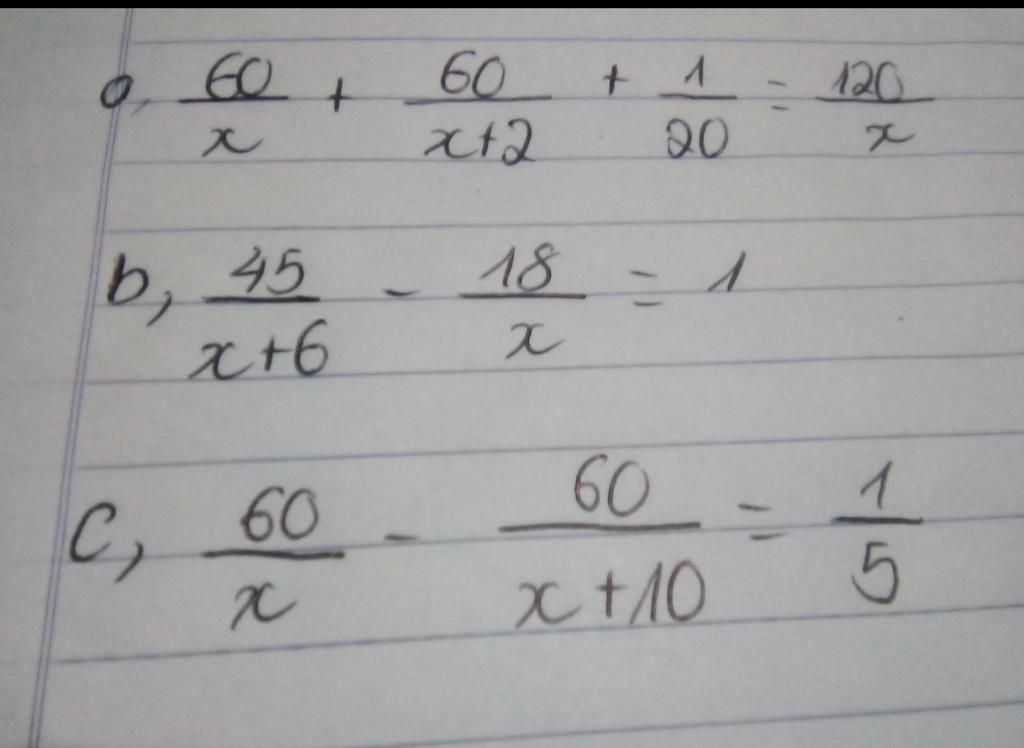 a, 60/x + 60/(x+2) + 1/20 = 120/x
b, 45/(x+6) - 18/x = 1
c, 60/x - 60/(x+10) = 1/5